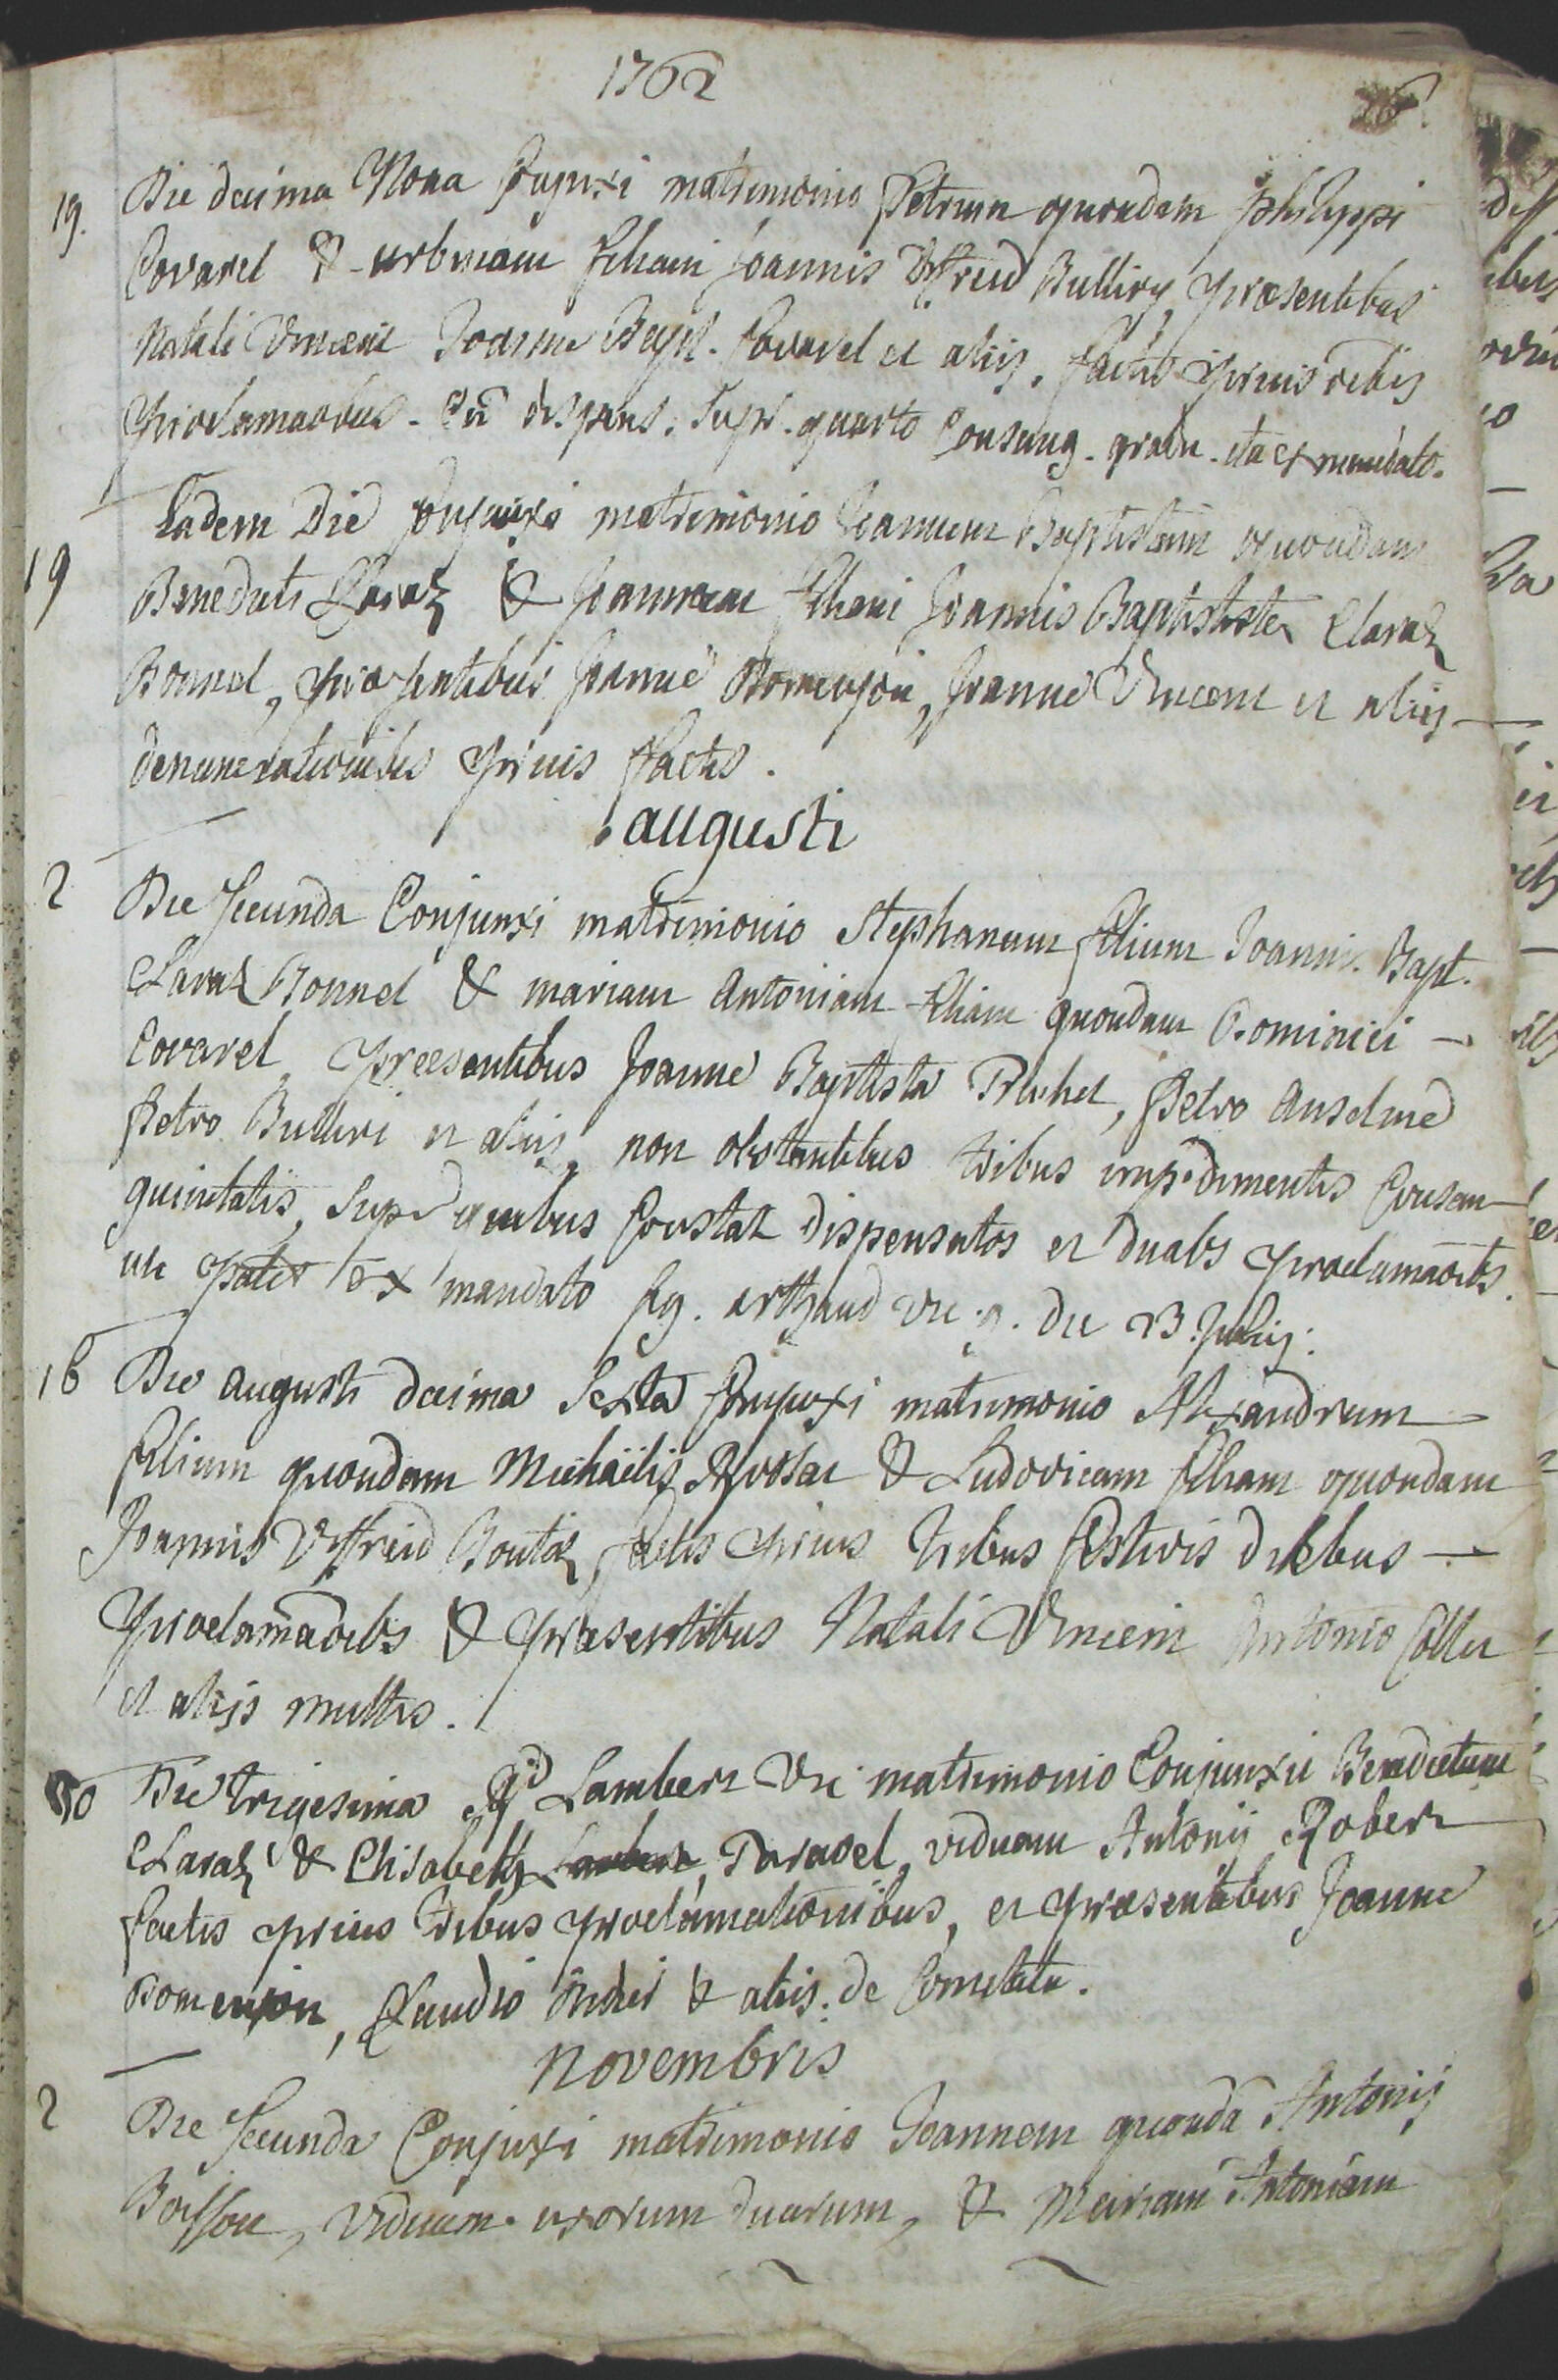 1762
19. Die decima Nona Conjunxi matrimonio Petrum quondam philippi
Covarel & urbanam filiam Joannis Uffred Bulliry, præsentibus
Natali Vincent Joanne Bapt. Covarel et aliis, factis prius tribus
proclamaōibus. Cū dispens. Supr. quarto Consang. gradu. ita ex mandato.
Eadem Die Conjunxi matrimonio Joannem Baptistam quondam
19 Benedicti Claraz & Joannam filiam Joannis Baptistæ Claraz
Bonnel, præsentibus Joanne Domenjon, Joanne Vincent et aliis
denunciationibus prius factis.
augusti
2 Die Secunda Conjunxi matrimonio Stephanum filium Joannis Bapt.
Claraz Bonnel & mariam Antoniam filiam quondam Dominici
Covarel præsentibus Joanne Baptista, Petro Anselme
Petro Bulliri et aliis, non obstantibus tribus impedimentis Consan-
guinitatis, Super quibus Constat dispensatos et duabs proclamaōibs.
uti patet ex mandato sig. arthaud vic. g. die 23. Julij.
16 Die augusti decima Sexta Conjunxi matrimonio Alexandrum
filium quondam Michaëlis & Ludovicam filiam quondam
Joannis Uffred Boutaz, factis prius tribus festivis diebus
proclamaōibs & præsentibus Natali Vincent Antonio Collet
et aliis multis.
30 Die trigesima Rd Lambert Vic matrimonio Conjunxit Benedictum
Claraz & Elisabeth Taravel, viduam Antonij Robert
factis prius tribus proclamationibus, et præsentibus Joanne
Domenjon, Claudio & aliis. de Comitatu.
novembris
2 Die Secunda Conjunxi matrimonio Joannem quondā Antonij
Boisson, viduum uxorum duarum, & Mariam Antoniam